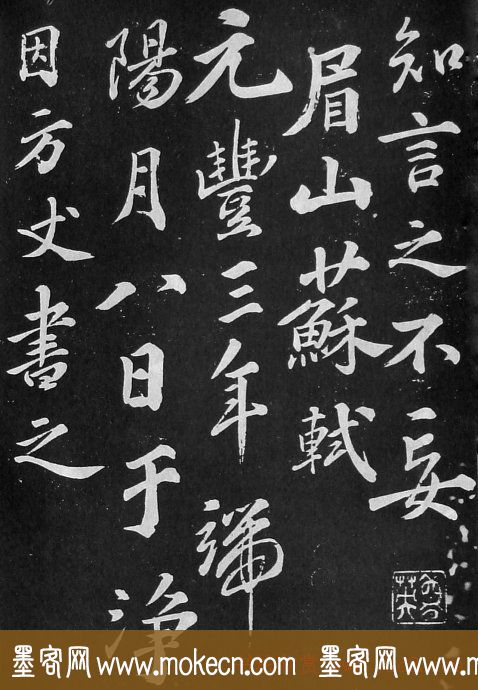 知言之不妄
眉山蘇軾
元豐三年端
陽月八日于淨
因方丈書之
墨客网 www.mokecn.com 墨客网 www.mokecn.com